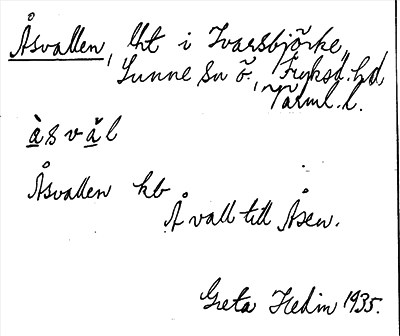 Åsvallen, lht i Ivarsbjörke,
Sunne sn ö., Fryksd. hd
Värml. l.
àsvǎl
Åsvallen kb
Å vall till Åsen.
Greta Hedin 1935.